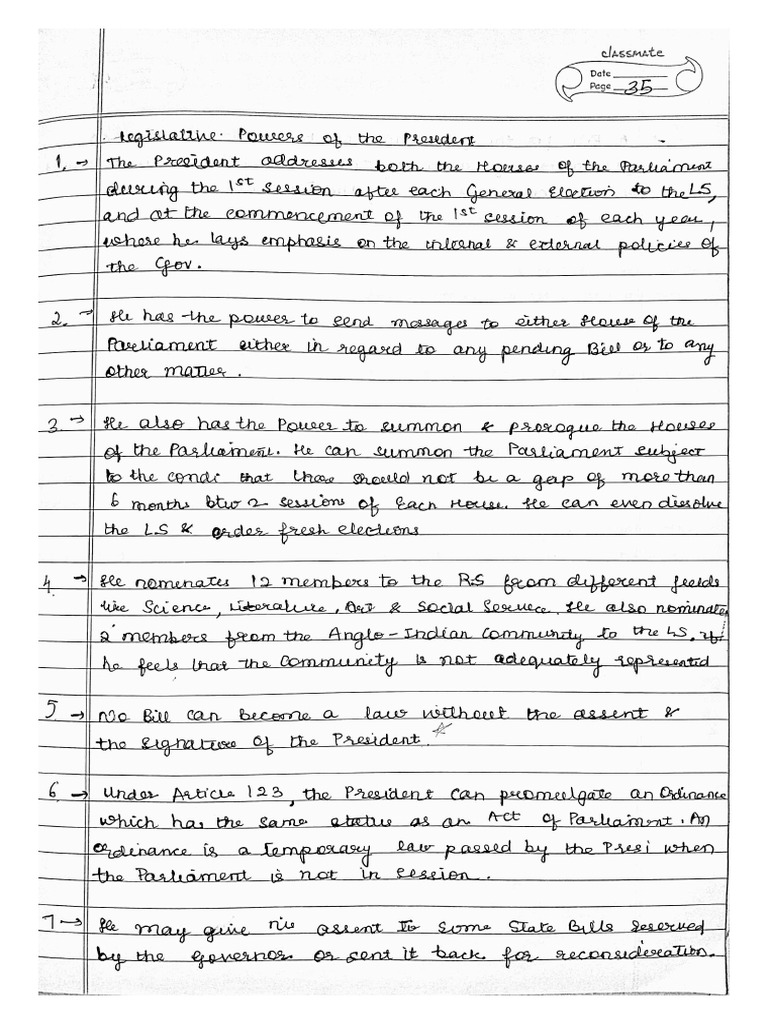 classmate
Date
Page 35
Legislative Powers of the President
1. → The President addresses both the Houses of the Parliament
during the 1st session after each General Election to the LS,
and at the commencement of the 1st session of each year,
where he lays emphasis on the internal & external policies of
the Gov.
2. → He has the power to send messages to either House of the
Parliament either in regard to any pending Bill or to any
other matter.
3. → He also has the Power to summon & prorogue the Houses
of the Parliament. He can summon the Parliament subject
to the condi that there should not be a gap of more than
6 months btw 2 sessions of Each House. He can even dissolve
the LS & order fresh elections
4. → He nominates 12 members to the RS from different fields
like Science, Literature, Art & Social Service. He also nominates
2 members from the Anglo-Indian Community to the LS. If
he feels that the community is not adequately represented
5 → No Bill can become a law without the assent &
the signature of the President.
6. → Under Article 123, the President can promulgate an Ordinance
which has the same status as an Act of Parliament. An
Ordinance is a temporary law passed by the Presi when
the Parliament is not in session.
7 → He may give his assent to some State Bills reserved
by the Governor or sent it back for reconsideration.